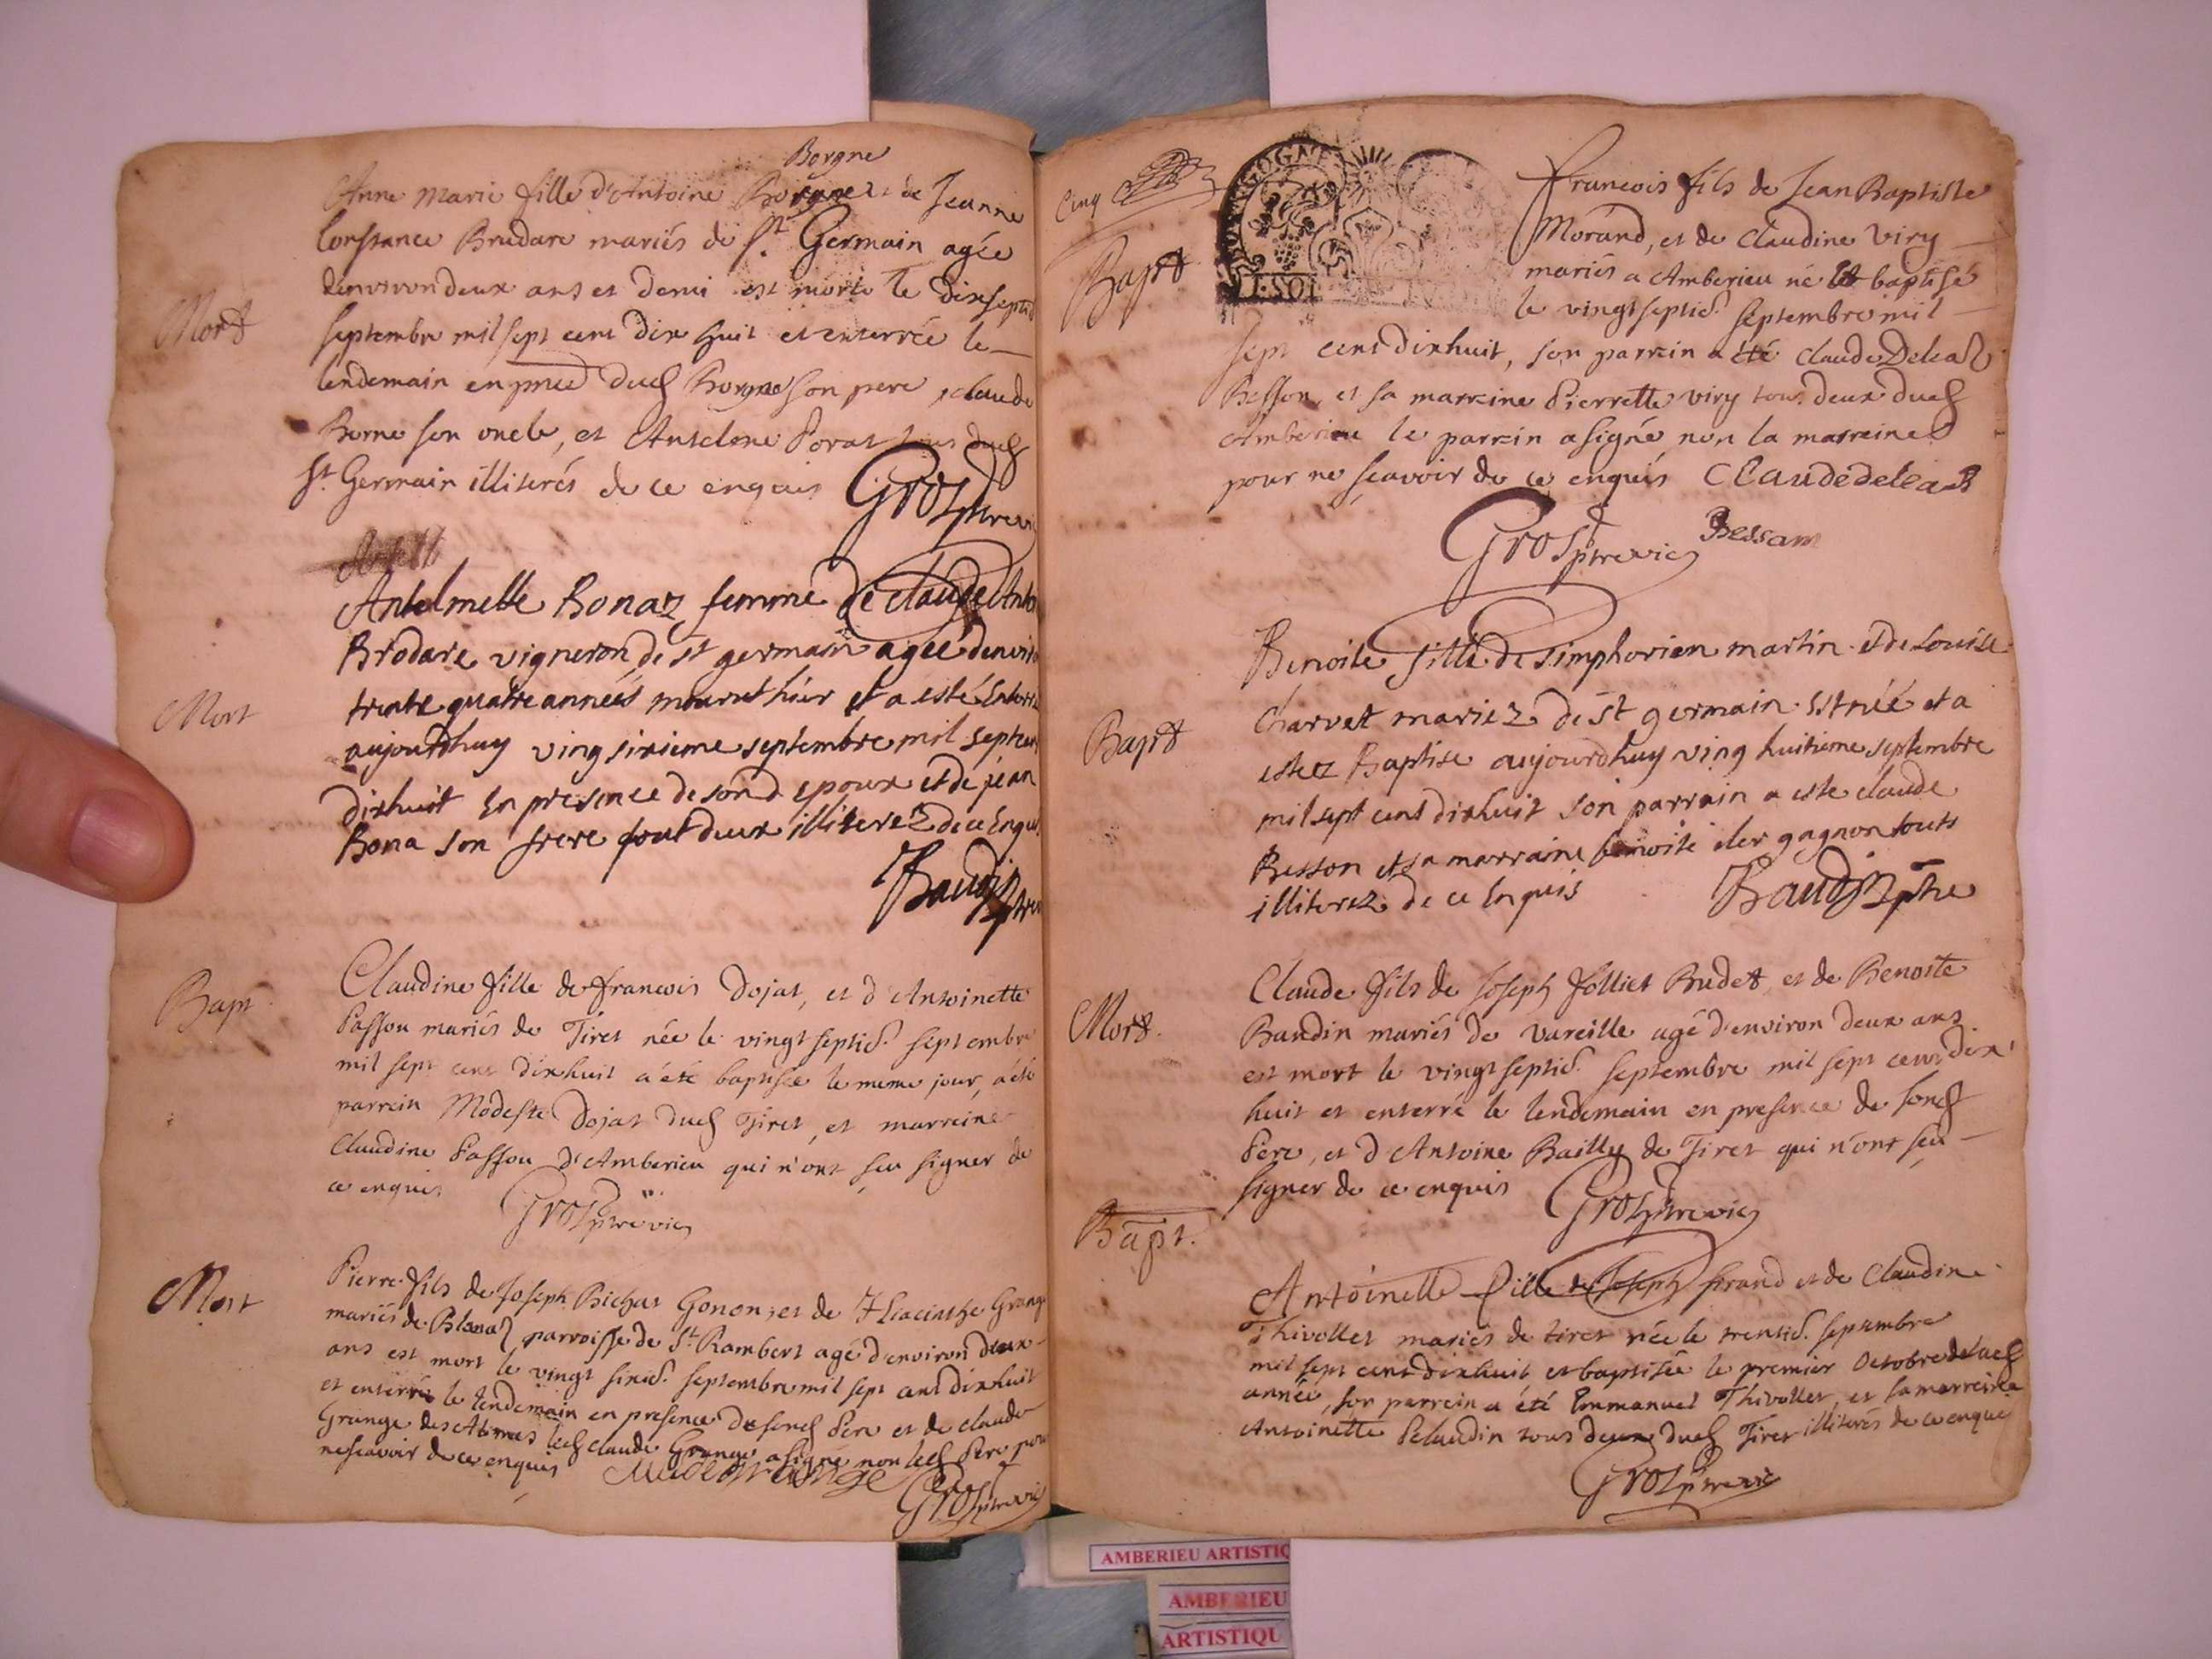 Borgne
Anne Marie fille d'Antoine Borgne et de Jeanne
Constance Brudare mariés de St Germain agée
denviron deux ans et demi est morte le dixsept
Mort
septembre mil sept cent dix huit et enterrée le
lendemain en pnce dud Borgne son pere, claude
Borne son oncle, et Antelme Porat tous dud
St Germain illiterés de ce enquis
Gros ptre vic
Antelmette Bonaz femme de claude Anto
Brodare vigneron de st germain agee denviro
trente quatre annees mourut hier et a esté Enterr
Mort
aujourdhuy ving sixieme septembre mil sept cent
dixhuit En presence de sond epoux et de jean
Bona son frere tout deux illiterez de ce Enqui
Baudin ptre
Claudine fille de francois Dojat, et d'Antoinette
Bapt
Passou mariés de Tiret née le vingt septie septembre
mil sept cent dixhuit a été baptisée le meme jour, a été
parrein Modeste Dojat dud Tiret, et marreine
Claudine Passou d'Amberieu qui n'ont sçu signer de
ce enquis
Gros ptre vic
Mort
Pierre fils de Joseph Bichat Gonon, et de Hiacinthe Grange
mariés de Blanaz parroisse de St Rambert agé d'environ deux
ans est mort le vingt sixie septembre mil sept cent dixhuit
et enterré le lendemain en presence de sond Pere et de claude
Grange des Abmes led claude Grange a signé non led Pere pour
ne scavoir de ce enquis
Gros ptre vic
Cinq
BOURGOGNE
I.SOL
Bapt
francois fils de Jean Baptiste
Morand, et de Claudine Viry
mariés a Amberieu né et baptisé
le vingtseptie septembre mil
sept cent dixhuit, son parrein a été Claude Deleaz
Besson, et sa marreine Pierrette Viry tous deux dud
Amberieu le parrein a signé non la marreine
pour ne scavoir de ce enquis Claude deleaz
Bessam
Gros ptre vic
Benoite fille de simphorien martin et de Louise
Charvet mariez de st germain Est née et a
Bapt
estez Baptise aujourdhuy ving huitieme septembre
mil sept cent dixhuit son parrain a este claude
Besson et sa marraine benoite iler gagnon touts
illiterez de ce Enquis
Baudin ptre
Claude fils de Joseph folliet Budet, et de Benoite
Mort.
Baudin mariés de Vareille agé d'environ deux ans
est mort le vingt septie septembre mil sept cent dix
huit et enterré le lendemain en presence de sond
Pere, et d'Antoine Bailly de Tiret qui n'ont sçu
signer de ce enquis
Gros ptre vic
Bapt.
Antoinette fille de Joseph ferrand et de Claudine
Thivollet mariés de tiret née le trentie septembre
mil sept cent dixhuit et baptisée le premier Octobre de lad
année, son parrein a été Emmanuel Thivollet, et sa marreine
Antoinette Belaudin tous deux dud Tiret illiterés de ce enquis
Gros ptre vic
AMBERIEU ARTISTIQ
AMBERIEU
ARTISTIQU